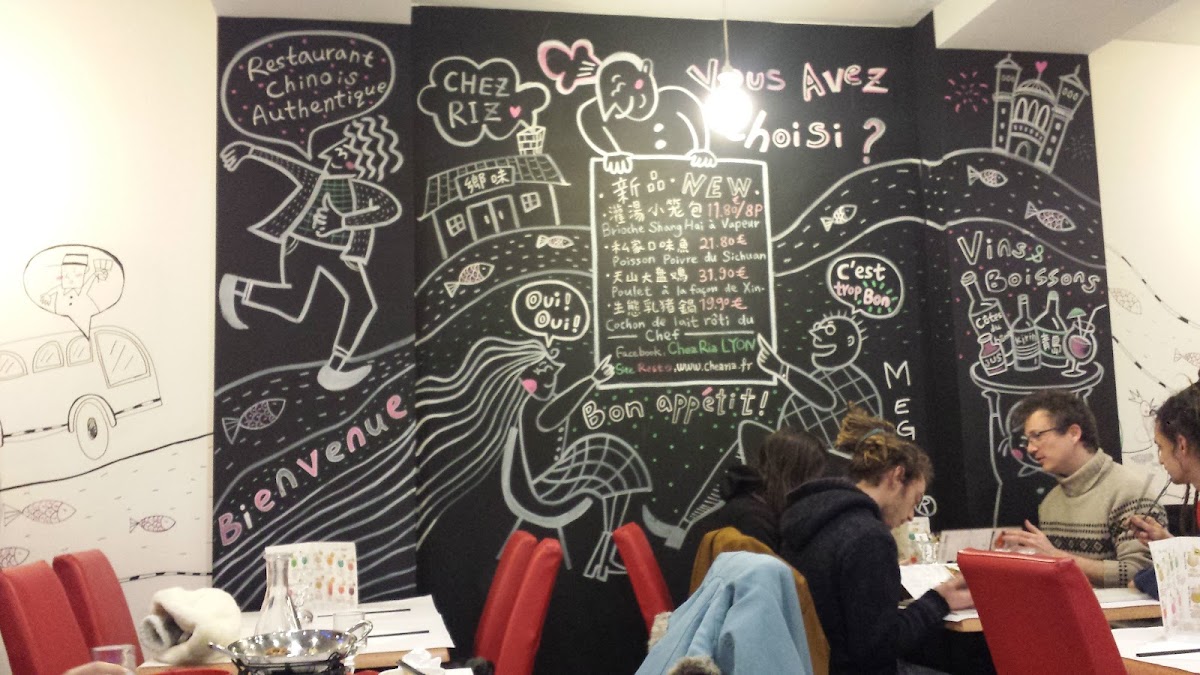 Restaurant
Chinois
Authentique
CHEZ
RIZ
鄉味
Bienvenue
Vous Avez
choisi ?
新品·NEW
·灌湯小笼包 11.80€/8P
Brioche ShangHai à Vapeur
·私家口味魚 21.80€
Poisson Poivre du Sichuan
·天山大盘鸡 31.90€
Poulet à la façon de Xin-
·生態乳猪鍋 19.90€
Cochon de lait rôti du
Chef
Facebook. Chez Riz LYON
Site Resto.www.chezriz.fr
Oui!
Oui!
Bon appétit!
C'est
trop Bon
Vins &
Boissons
Côtes
du
Kirin
青島
JUS
MEG